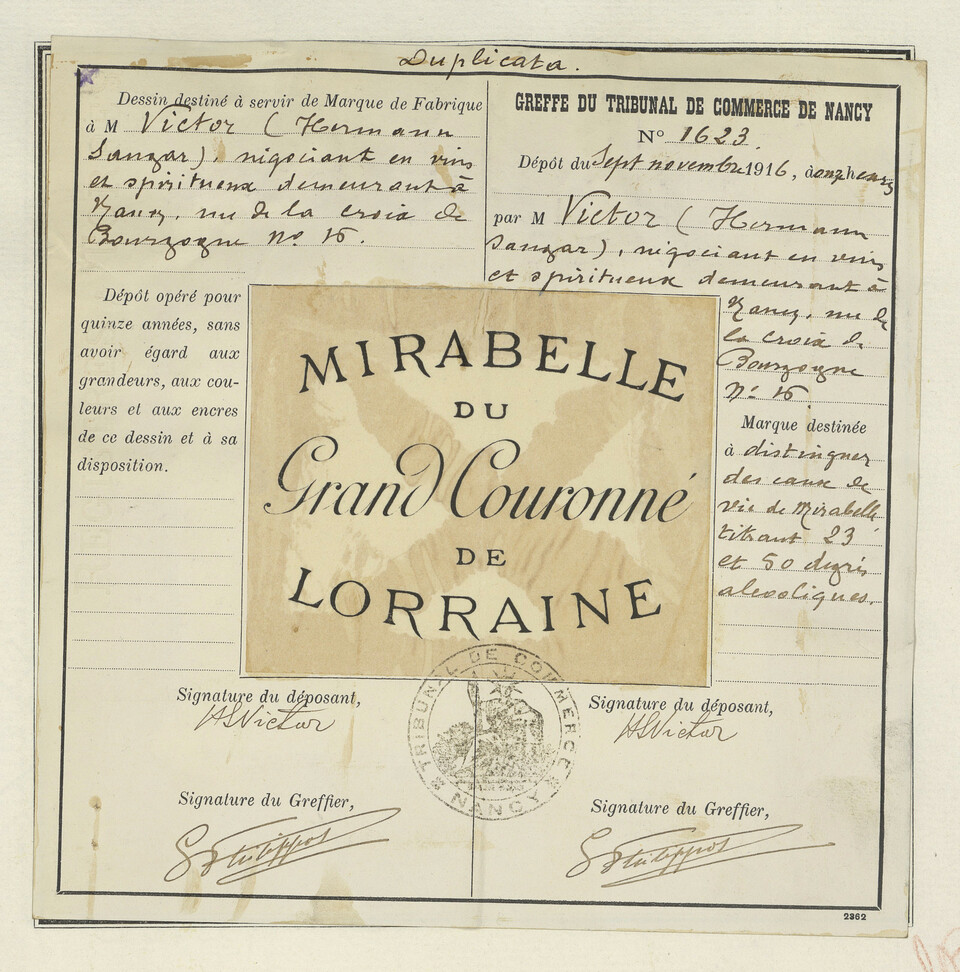 Duplicata.
Dessin destiné à servir de Marque de Fabrique
à M Victor (Hermann
Sanzar), négociant en vins
et spiritueux demeurant à
Nancy, rue de la croix de
Bourgogne No 16.
Dépôt opéré pour
quinze années, sans
avoir égard aux
grandeurs, aux cou-
leurs et aux encres
de ce dessin et à sa
disposition.
GREFFE DU TRIBUNAL DE COMMERCE DE NANCY
No 1623.
Dépôt du Sept novembre 1916, à onze heures
par M Victor (Hermann
Sanzar), négociant en vins
et spiritueux demeurant à
Nancy, rue de
la croix de
Bourgogne
No 16
Marque destinée
à distinguer
des eaux de
vie de Mirabelle
titrant 23
et 50 degrés
alcooliques.
MIRABELLE
DU
Grand Couronné
DE
LORRAINE
TRIBUNAL DE COMMERCE
NANCY
Signature du déposant,
HSVictor
Signature du déposant,
HSVictor
Signature du Greffier,
Philippot
Signature du Greffier,
Philippot
2362